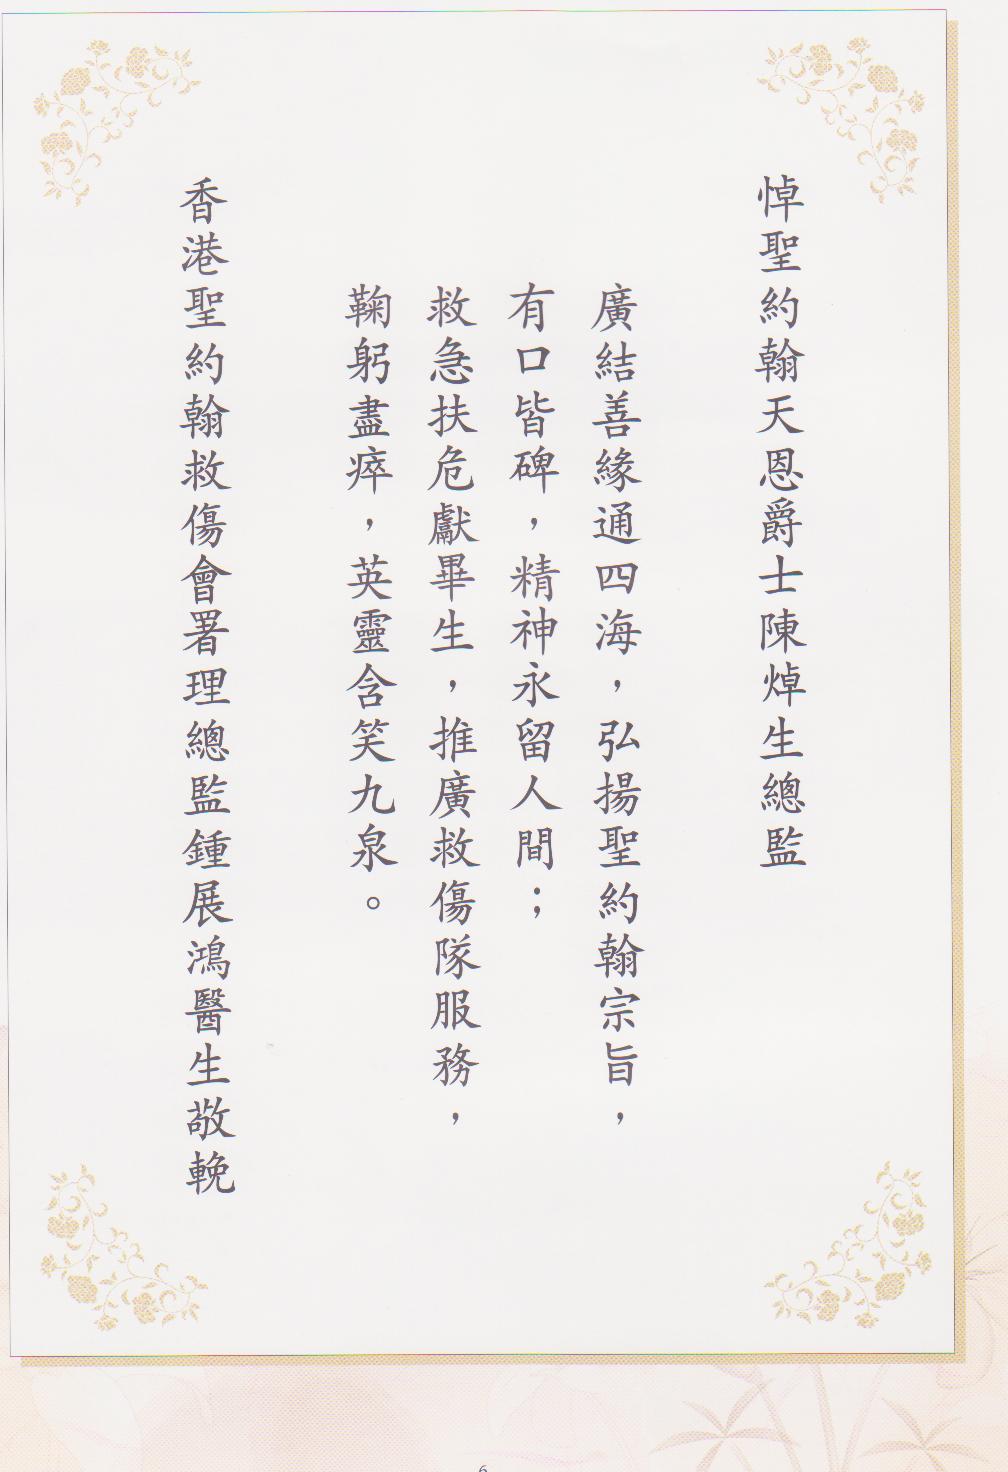 悼聖約翰天恩爵士陳焯生總監
廣結善緣通四海，弘揚聖約翰宗旨，
有口皆碑，精神永留人間；
救急扶危獻畢生，推廣救傷隊服務，
鞠躬盡瘁，英靈含笑九泉。
香港聖約翰救傷會署理總監鍾展鴻醫生敬輓
6